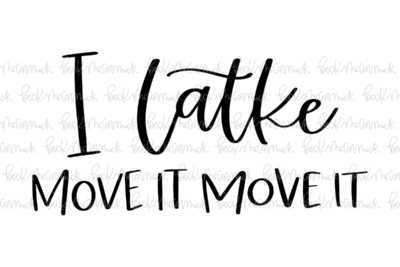 I Latke
MOVE IT MOVE IT